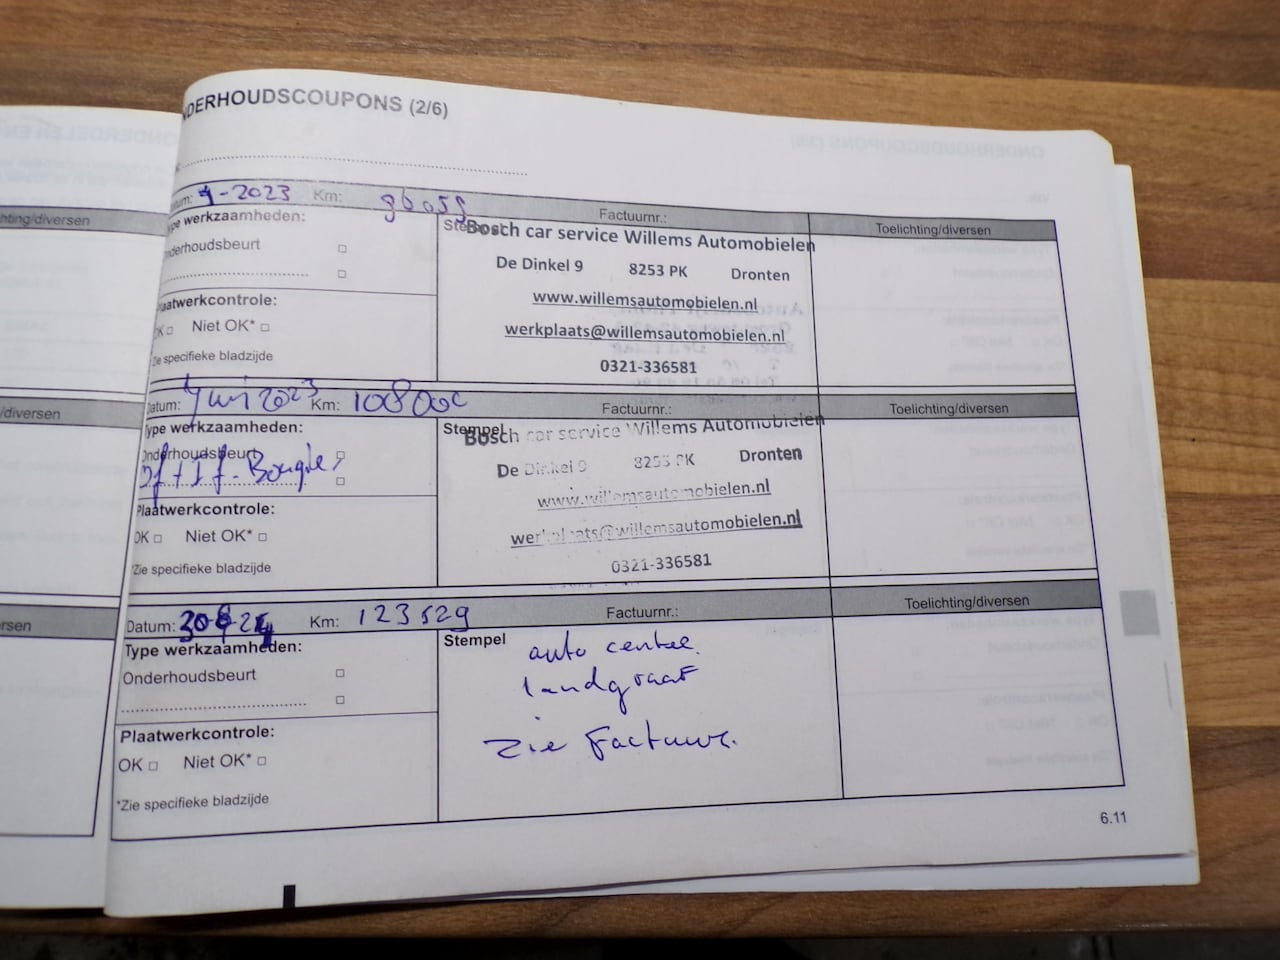 NDERHOUDSCOUPONS (2/6)
-2023 Km: Factuurnr.: Toelichting/diversen
Type werkzaamheden:
Onderhoudsbeurt
Plaatwerkcontrole:
OK Niet OK*
Zie specifieke bladzijde
Stempel
Bosch car service Willems Automobielen
De Dinkel 9 8253 PK Dronten
www.willemsautomobielen.nl
werkplaats@willemsautomobielen.nl
0321-336581
Datum: Juni 2023 Km: 108000 Factuurnr.: Toelichting/diversen
Type werkzaamheden:
Onderhoudsbeurt
Of + If - Bougie
Plaatwerkcontrole:
OK Niet OK*
*Zie specifieke bladzijde
Stempel
Bosch car service Willems Automobielen
De Dinkel 9 8253 PK Dronten
www.willemsautomobielen.nl
werkplaats@willemsautomobielen.nl
0321-336581
Datum: Km: 123529 Factuurnr.: Toelichting/diversen
Type werkzaamheden:
Onderhoudsbeurt
Plaatwerkcontrole:
OK Niet OK*
*Zie specifieke bladzijde
Stempel
auto centre
landgraaf
Zie Factuur.
6.11
hting/diversen
/diversen
ersen